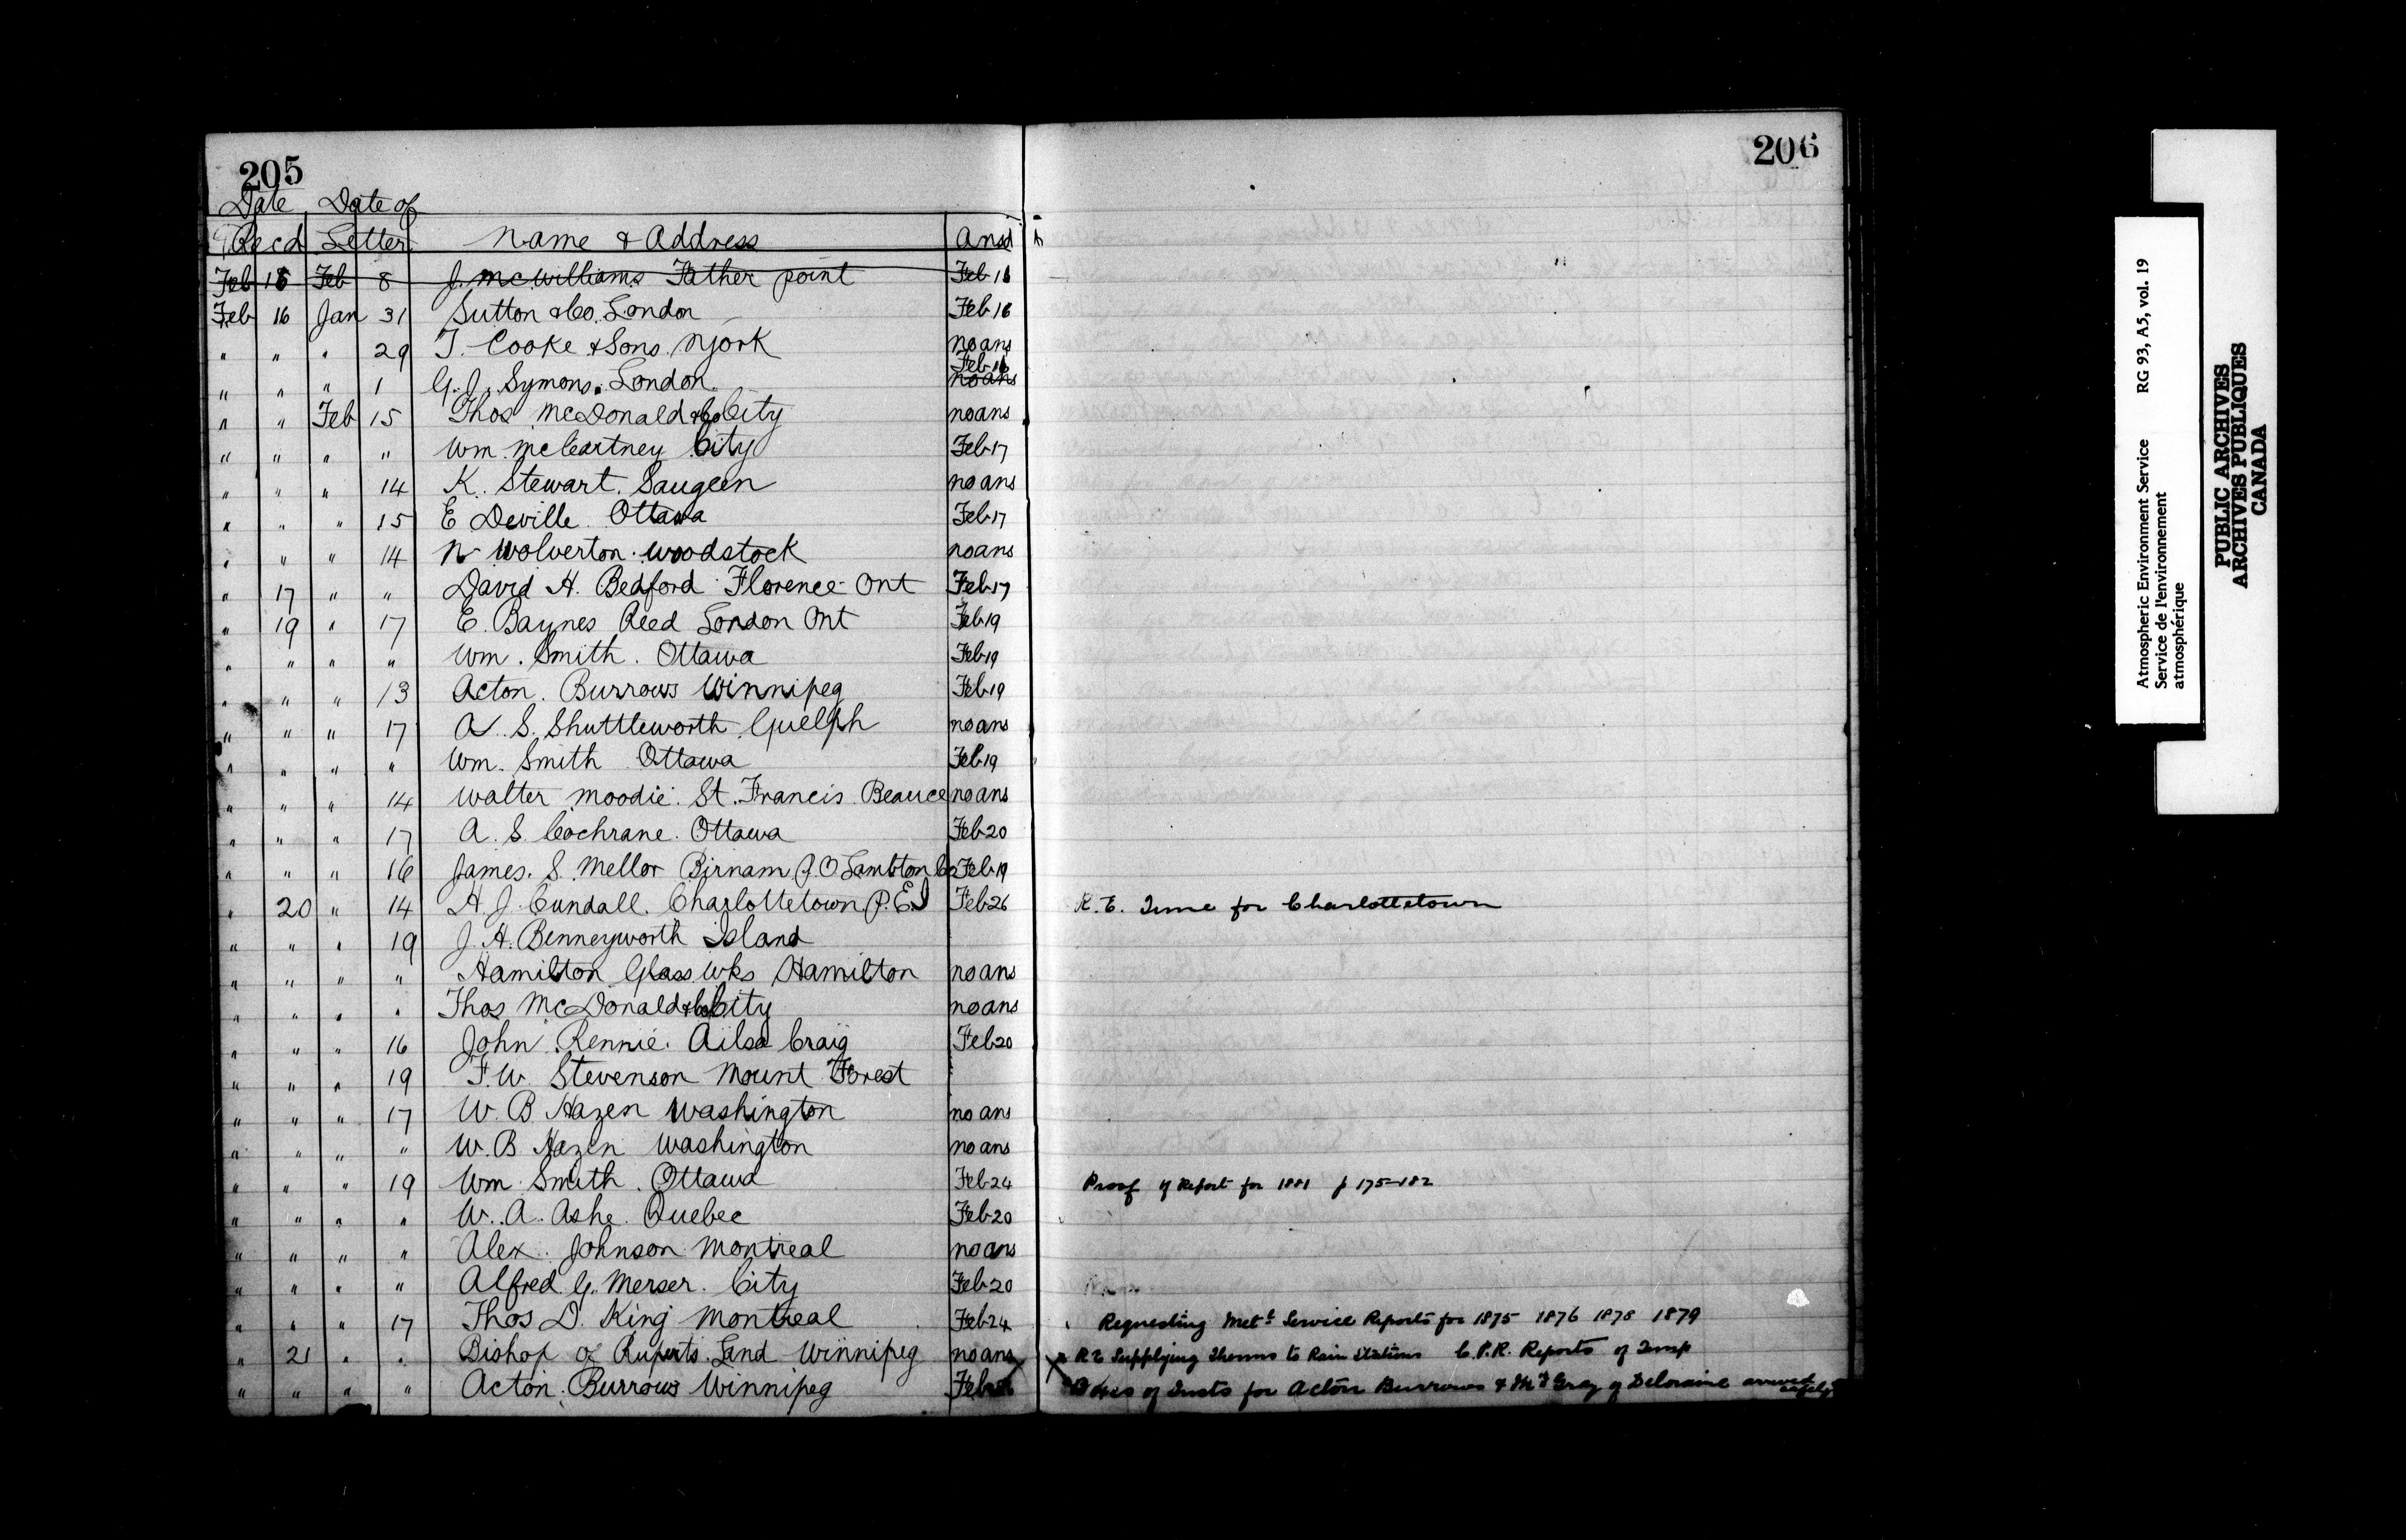 205
206
Date Date of
Recd Letter Name & Address Ansd
Feb 16 Feb 8 J. McWilliams Father point Feb 16
Feb 16 Jan 31 Sutton & Co. London Feb 16
" " " 29 T. Cooke & Sons. N york no ans
Feb 16
" " " 1 G. J. Symons. London no ans
" " Feb 15 Thos McDonald & Co City no ans
" " " " Wm. McCartney City Feb 17
" " " 14 K. Stewart. Saugeen no ans
" " " 15 E Deville. Ottawa Feb 17
" " " 14 N Wolverton. Woodstock no ans
" 17 " " David H. Bedford Florence Ont Feb 17
" 19 " 17 E. Baynes Reed London Ont Feb 19
" " " " Wm. Smith. Ottawa Feb 19
" " " 13 Acton. Burrows Winnipeg Feb 19
" " " 17 A. S. Shuttleworth Guelph no ans
" " " " Wm. Smith Ottawa Feb 19
" " " 14 Walter Moodie. St. Francis Beauce no ans
" " " 17 A. S. Cochrane. Ottawa Feb 20
" " " 16 James. S. Mellor Birnam P.O Lambton Co Feb 19
" 20 " 14 H. J. Cundall. Charlottetown P.E.I Feb 26 R.E. Time for Charlottetown
" " " 19 J. H. Benneyworth Island
" " " " Hamilton Glass Wks Hamilton no ans
" " " " Thos McDonald & Co City no ans
" " " 16 John Rennie. Ailsa Craig Feb 20
" " " 19 F. W. Stevenson Mount Forest
" " " 17 W. B Hazen Washington no ans
" " " " W. B Hazen Washington no ans
" " " 19 Wm Smith. Ottawa Feb 24 Proof of Report for 1881 p 175-182
" " " " W. A. Ashe. Quebec Feb 20
" " " " Alex. Johnson Montreal no ans
" " " " Alfred G. Merser. City Feb 20
" " " 17 Thos D. King Montreal Feb 24 Requesting Metl Service Reports for 1875 1876 1878 1879
" 21 " " Bishop of Ruperts Land Winnipeg no ans RE Supplying Therms to Rain Stations C.P.R. Reports of Temp
" " " " Acton. Burrows Winnipeg Feb Boxes of Insts for Acton Burrows & Mr Gray of Deloraine arrived
safely
Atmospheric Environment Service RG 93, A5, vol. 19
Service de l'environnement
atmosphérique
PUBLIC ARCHIVES
ARCHIVES PUBLIQUES
CANADA